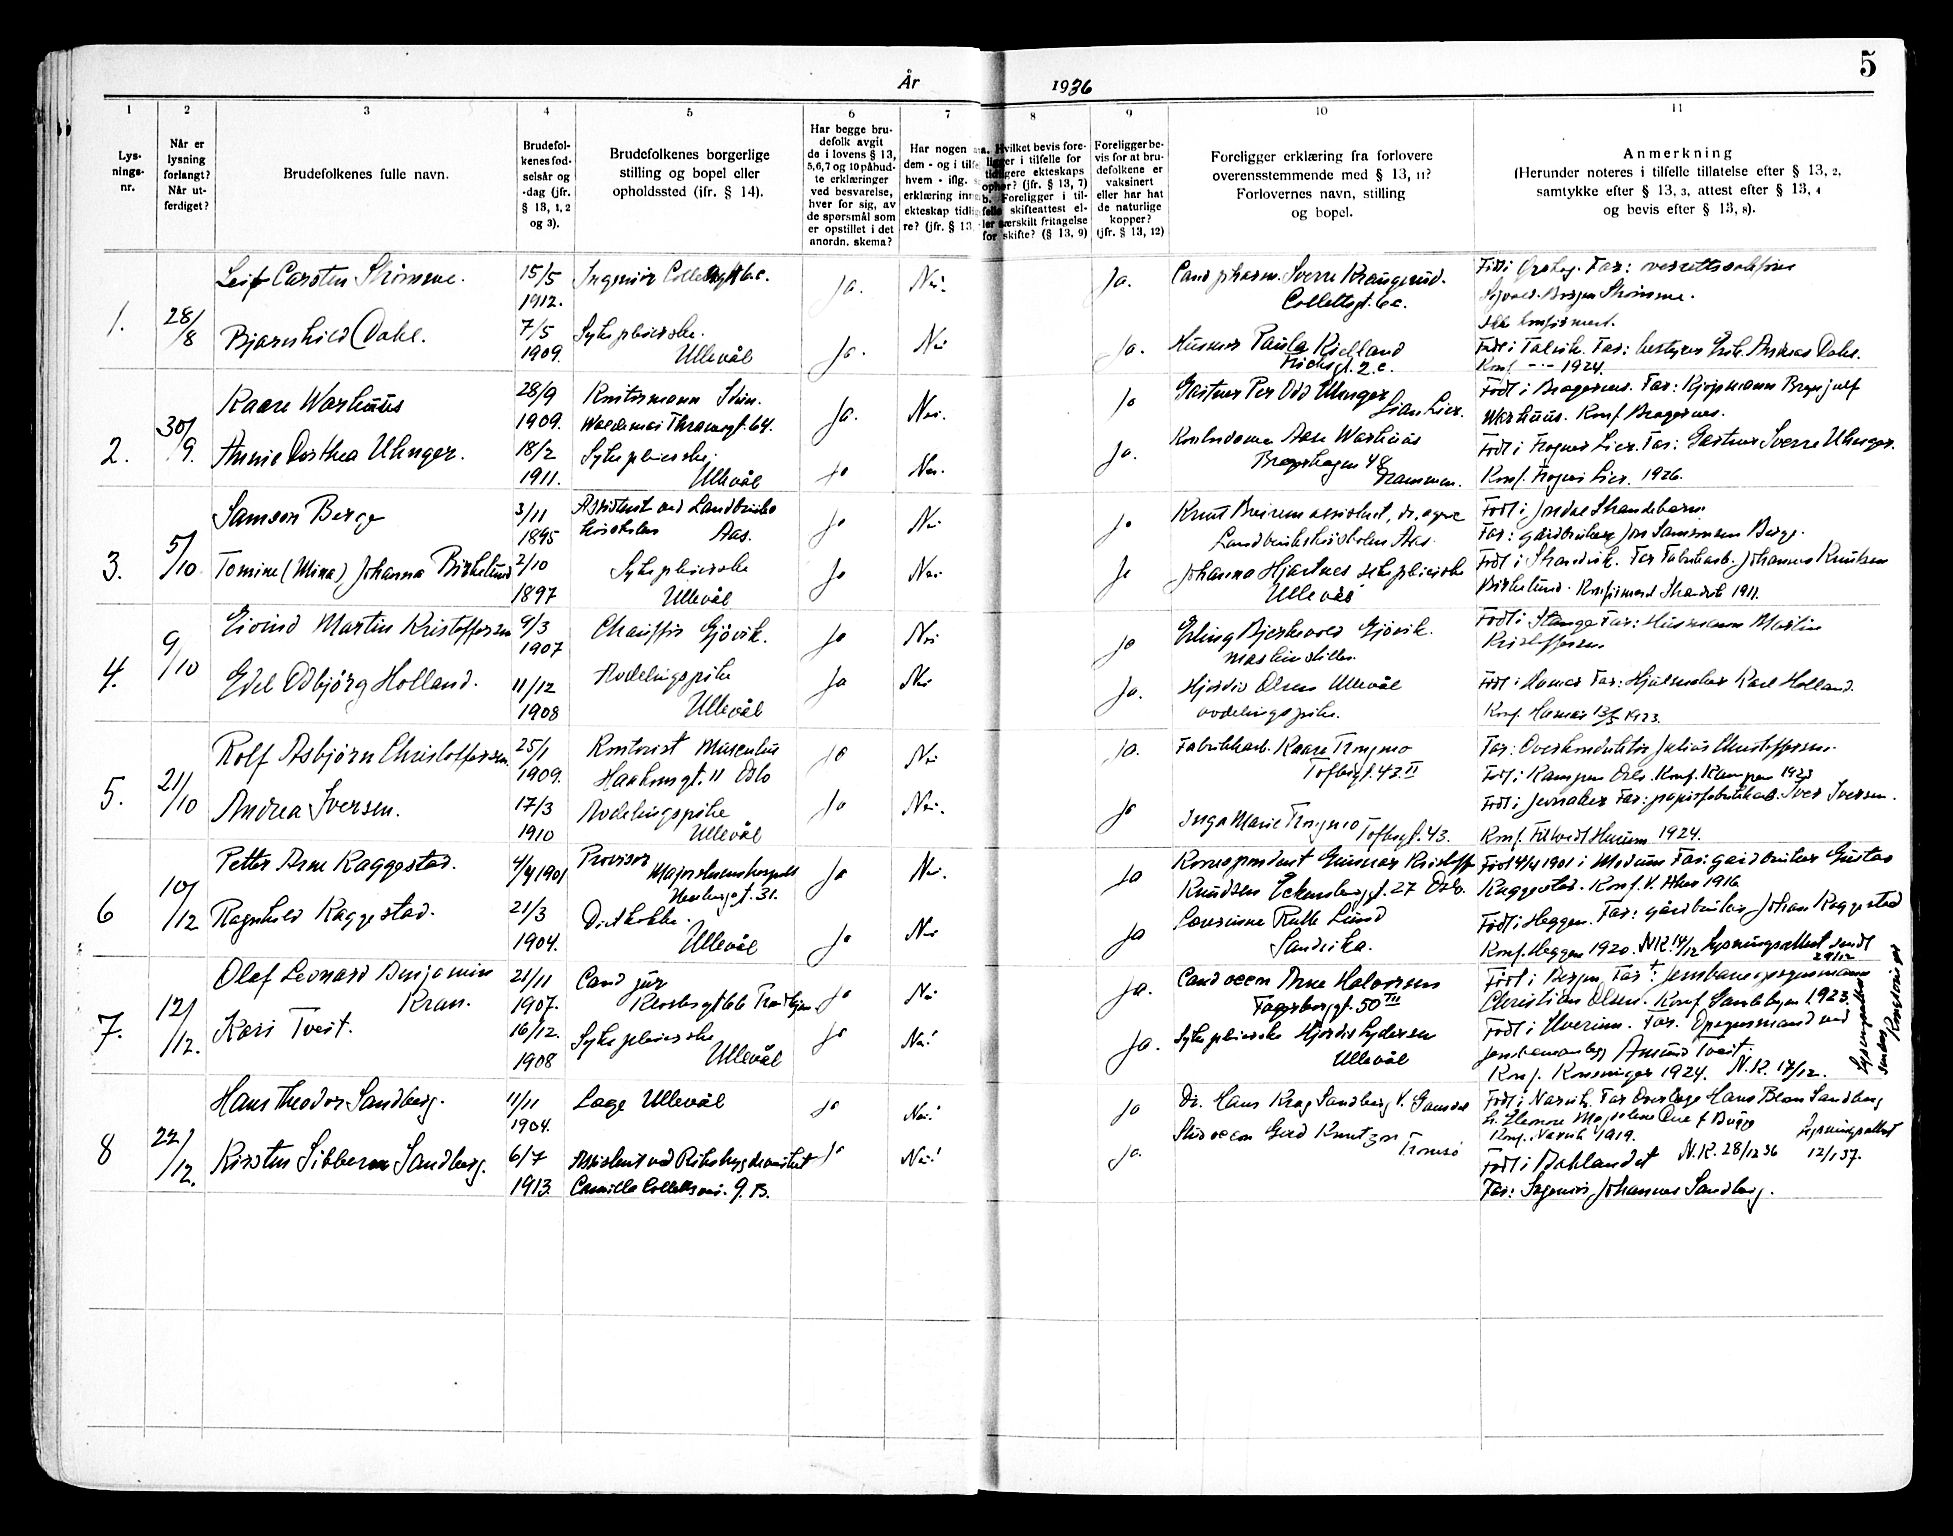 5
År 1936
1 2 3 4 5 6 7 8 9 10 11
Lys-
nings-
nr.
Når er
lysning
forlangt?
Når ut-
ferdiget?
Brudefolkenes fulle navn.
Brudefol-
kenes fød-
selsår og
-dag (jfr.
§ 13, 1, 2
og 3).
Brudefolkenes borgerlige
stilling og bopel eller
opholdssted (jfr. § 14).
Har begge bru-
defolk avgit
de i lovens § 13,
5,6,7 og 10 påbud-
te erklæringer
ved besvarelse,
hver for sig, av
de spørsmål som
er opstillet i det
anordn. skema?
Har nogen
dem - og i tilfe
hvem - iflg.
erklæring inng
ekteskap tidlig
re? (jfr. § 13,
a. Hvilket bevis fore-
ligger i tilfelle for
tidligere ekteskaps
ophør? (jfr. § 13, 7)
b. Foreligger i til-
felle skifteattest el-
ler særskilt fritagelse
for skifte? (§ 13, 9)
Foreligger be-
vis for at bru-
defolkene er
vaksinert
eller har hat
de naturlige
kopper?
(jfr. § 13, 12)
Foreligger erklæring fra forlovere
overensstemmende med § 13, 11?
Forlovernes navn, stilling
og bopel.
Anmerkning
(Herunder noteres i tilfelle tillatelse efter § 13, 2,
samtykke efter § 13, 3, attest efter § 13, 4
og bevis efter § 13, 8).
1. 28/8
Leif Carsten Strømme.
15/5
1912.
Ingeniør Collettsgt 6c.
Ja. Nei.
Ja.
Cand pharm. Sverre Krangerud.
Collettsgt. 6c.
Født i Ørskog. Far: overrettssakfører
Strømme.
Ikke konfirmert.
Bjarnhild Dahl.
7/5
1909.
Sykepleierske.
Ullevål
Ja. Nei
Ja.
Husmor Paula Kielland
Frichsgt. 2.c.
Født i Talvik. Far: bestyrer Andreas Dahl.
Konf. — 1924.
2. 30/9.
Kaare Warhuus
28/9
1909.
Kontormann
Waldemar Thranesgt. 64.
Ja. Nei.
Ja
Gartner Per Odd Uhnger
Lian Lier.
Født i Bragernes. Far: Kjøpmann
Warhuus. Konf. Bragernes.
Annie Dorthea Uhnger.
18/2
1911.
Sykepleierske.
Ullevål
Ja Nei.
Ja.
Kontordame Aase Warhuus
48
Drammen.
Født i Frogner Lier. Far: Gartner Sverre Uhnger.
Konf. Frogner Lier. 1926.
3. 5/10
Samson Berge
3/11
1895
Assistent ved Landbruks
høiskolen Aas.
Ja Nei
Ja
Knut Breirem assistent, dr. agric
Landbrukshøiskolen Aas.
Født i Strandebarm
Far: gårdbruker Jon Samsonsen Berge.
Tomine (Mina) Johanna Birkelund
2/10
1897
Sykepleierske
Ullevål
Ja Nei
Ja
Johanna Hjartnes sykepleierske
Ullevål
Født i Strandvik. Far Fabrikarb. Johannes Knutsen
Birkelund. Konfirmert Strandvik 1911.
4. 9/10
Eivind Martin Kristoffersen
9/3
1907
Chauffør Gjøvik.
Ja Nei
Ja
Erling Bjerkevold Gjøvik.
maskinstiller.
Født i Stange Far: Husmann Martin
Kristoffersen
Edel Odbjørg Holland.
11/12
1908
Avdelingspike
Ullevål
Ja Nei
Ja.
Hjørdis Olsen Ullevål
avdelingspike.
Født i Hamar Far: Hjulmaker Karl Holland.
Konf. Hamar 1923.
5. 21/10
Rolf Asbjørn Christoffersen.
25/1
1909.
Kontorist
Haakonsgt. 11 Oslo
Ja Nei
Ja.
Fabrikkarb. Kaare Trogmo
Toftesgt. 43 II
Far: Overkonduktør Julius Christoffersen.
Født i Kampen Oslo. Konf. Kampen 1923
Andrea Iversen.
17/3
1910
Avdelingspike
Ullevål
Ja Nei.
Ja
Inga Marie Trogmo Toftesgt. 43.
Født i Jevnaker Far: papirfabrikkarb. Iver Iversen.
Konf. Filtvedt Hurum 1924.
6 10/12
Petter Arne Raggestad.
4/4 1901
Provisor
Majorstuenshospital
31.
Ja Nei.
Ja
Korrespondent Gunnar Kristoffer
Knudsen Eckersbergsgt. 27 Oslo.
Født 4/4 1901 i Modum Far: gårdbruker Gustav
Raggestad. Konf. V. Aker 1916
Ragnhild Raggestad.
21/3
1904.
Diætkokke.
Ullevål
Ja Nei
Ja
Rutle Lund
Sandvika.
Født i Heggen. Far: gårdbruker Johan Raggestad
Konf. Heggen 1920. N.K. 14/12 Lysningsattest sendt
29/12
7. 12/12.
Olaf Leonard Benjamin
Kran.
21/11
1907.
Cand jur
Ja Nei
Ja.
Cand oecon Arne Halvorsen
Fagerborggt. 50 III
Født i Bergen, Far †: Jernbaneopsynsmann
Christian Olsen. Konf. 1923.
Kari Tveit.
16/12.
1908
Sykepleierske
Ullevål
Ja Nei!
Ja.
Sykepleierske Hjørdis Lydersen
Ullevål
Født i Elverum. Far. Opsynsmand ved
jernbaneanlegg Amund Tveit.
Konf. Kongsvinger 1924. N.K. 17/12.
Lysningsattest
sendes
8 22/12.
Hans Theodor Sandberg.
11/11
1904.
Læge Ullevål
Ja Nei!
Ja
Dr. Hans Krag Sandberg V. Gausdal
Født i Narvik. Far Overlæge Hans Sandberg
Konf. i Narvik 1919.
Kirsten Sibbern Sandberg.
6/7
1913.
Assistent ved Rikshygdeanstalt
Camilla Colletts vei. 9. B.
Ja Nei!
Ja.
Stud oecon Gerd Knutzen
Tromsø
Født i
N.K. 28/12 36
Lysningsattest
12/1 37.
Far: Ingeniør Johannes Sandberg.